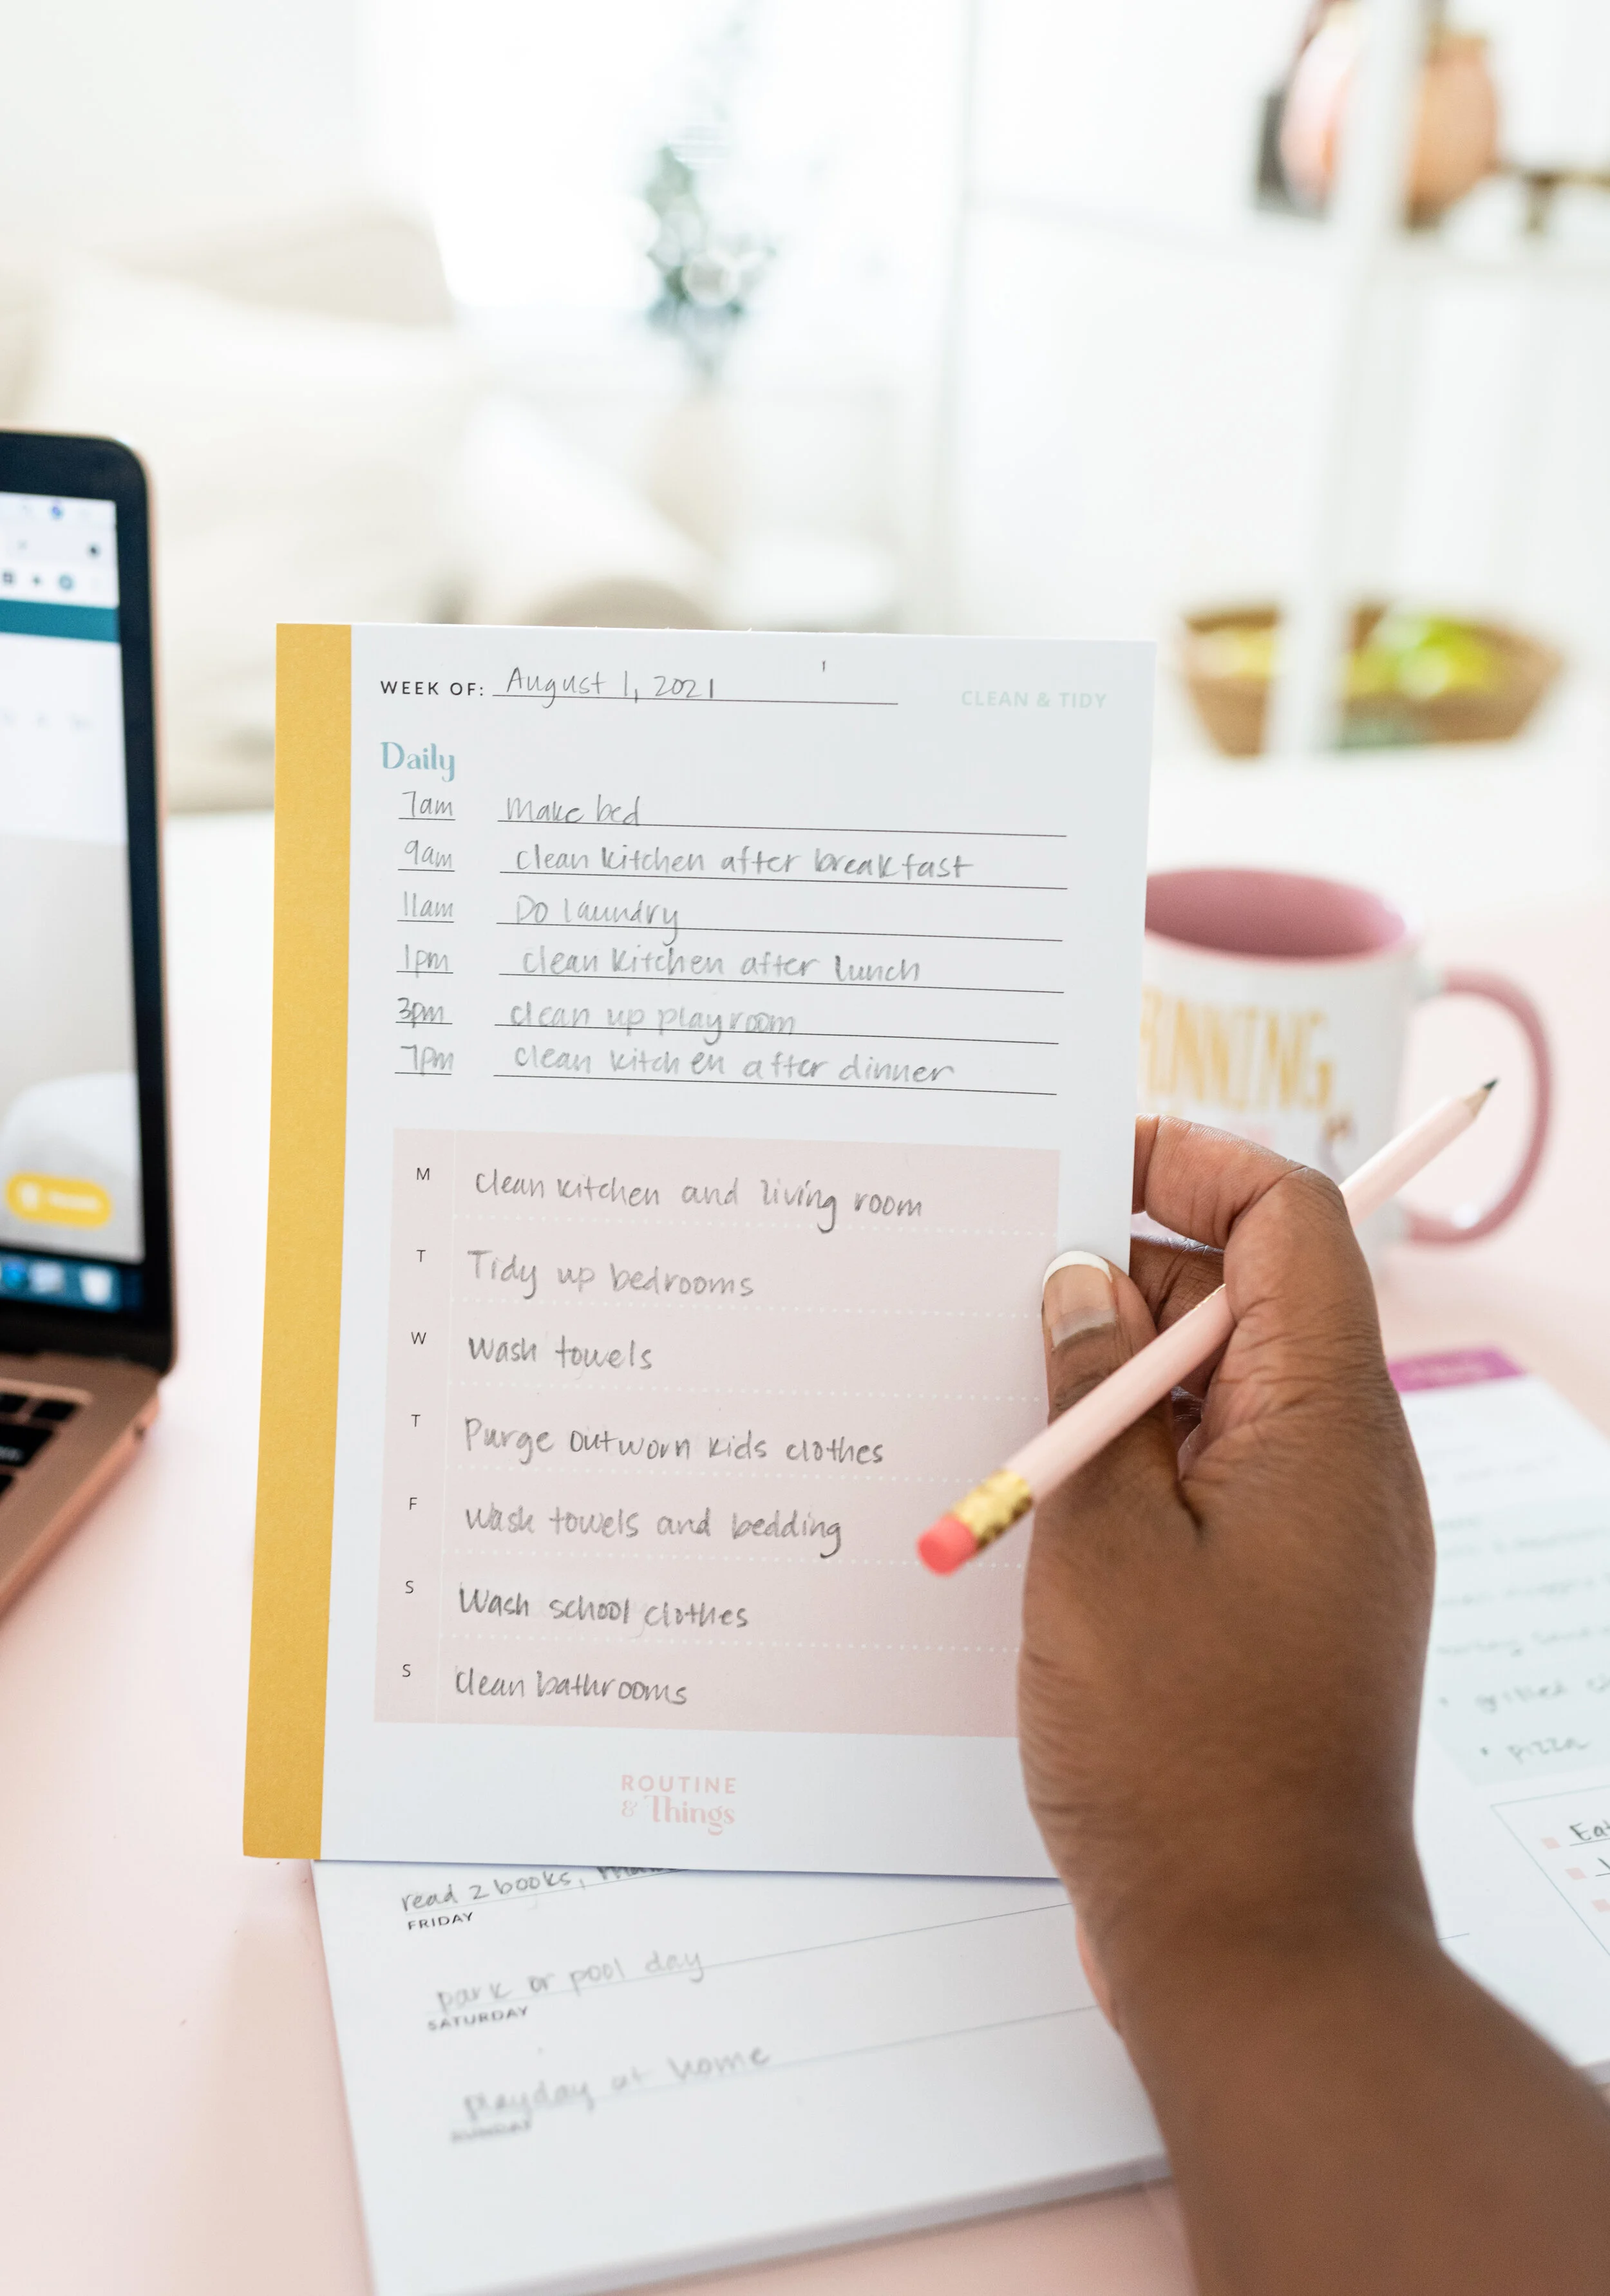 WEEK OF: August 1, 2021
CLEAN & TIDY
Daily
7am make bed
9am clean kitchen after breakfast
11am Do laundry
1pm clean kitchen after lunch
3pm clean up playroom
7pm clean kitchen after dinner
M clean kitchen and living room
T Tidy up bedrooms
W Wash towels
T Purge outworn kids clothes
F Wash towels and bedding
S Wash school clothes
S clean bathrooms
ROUTINE
& Things
read 2 books,
FRIDAY
park or pool day
SATURDAY
playday at home
SUNDAY
grilled
pizza